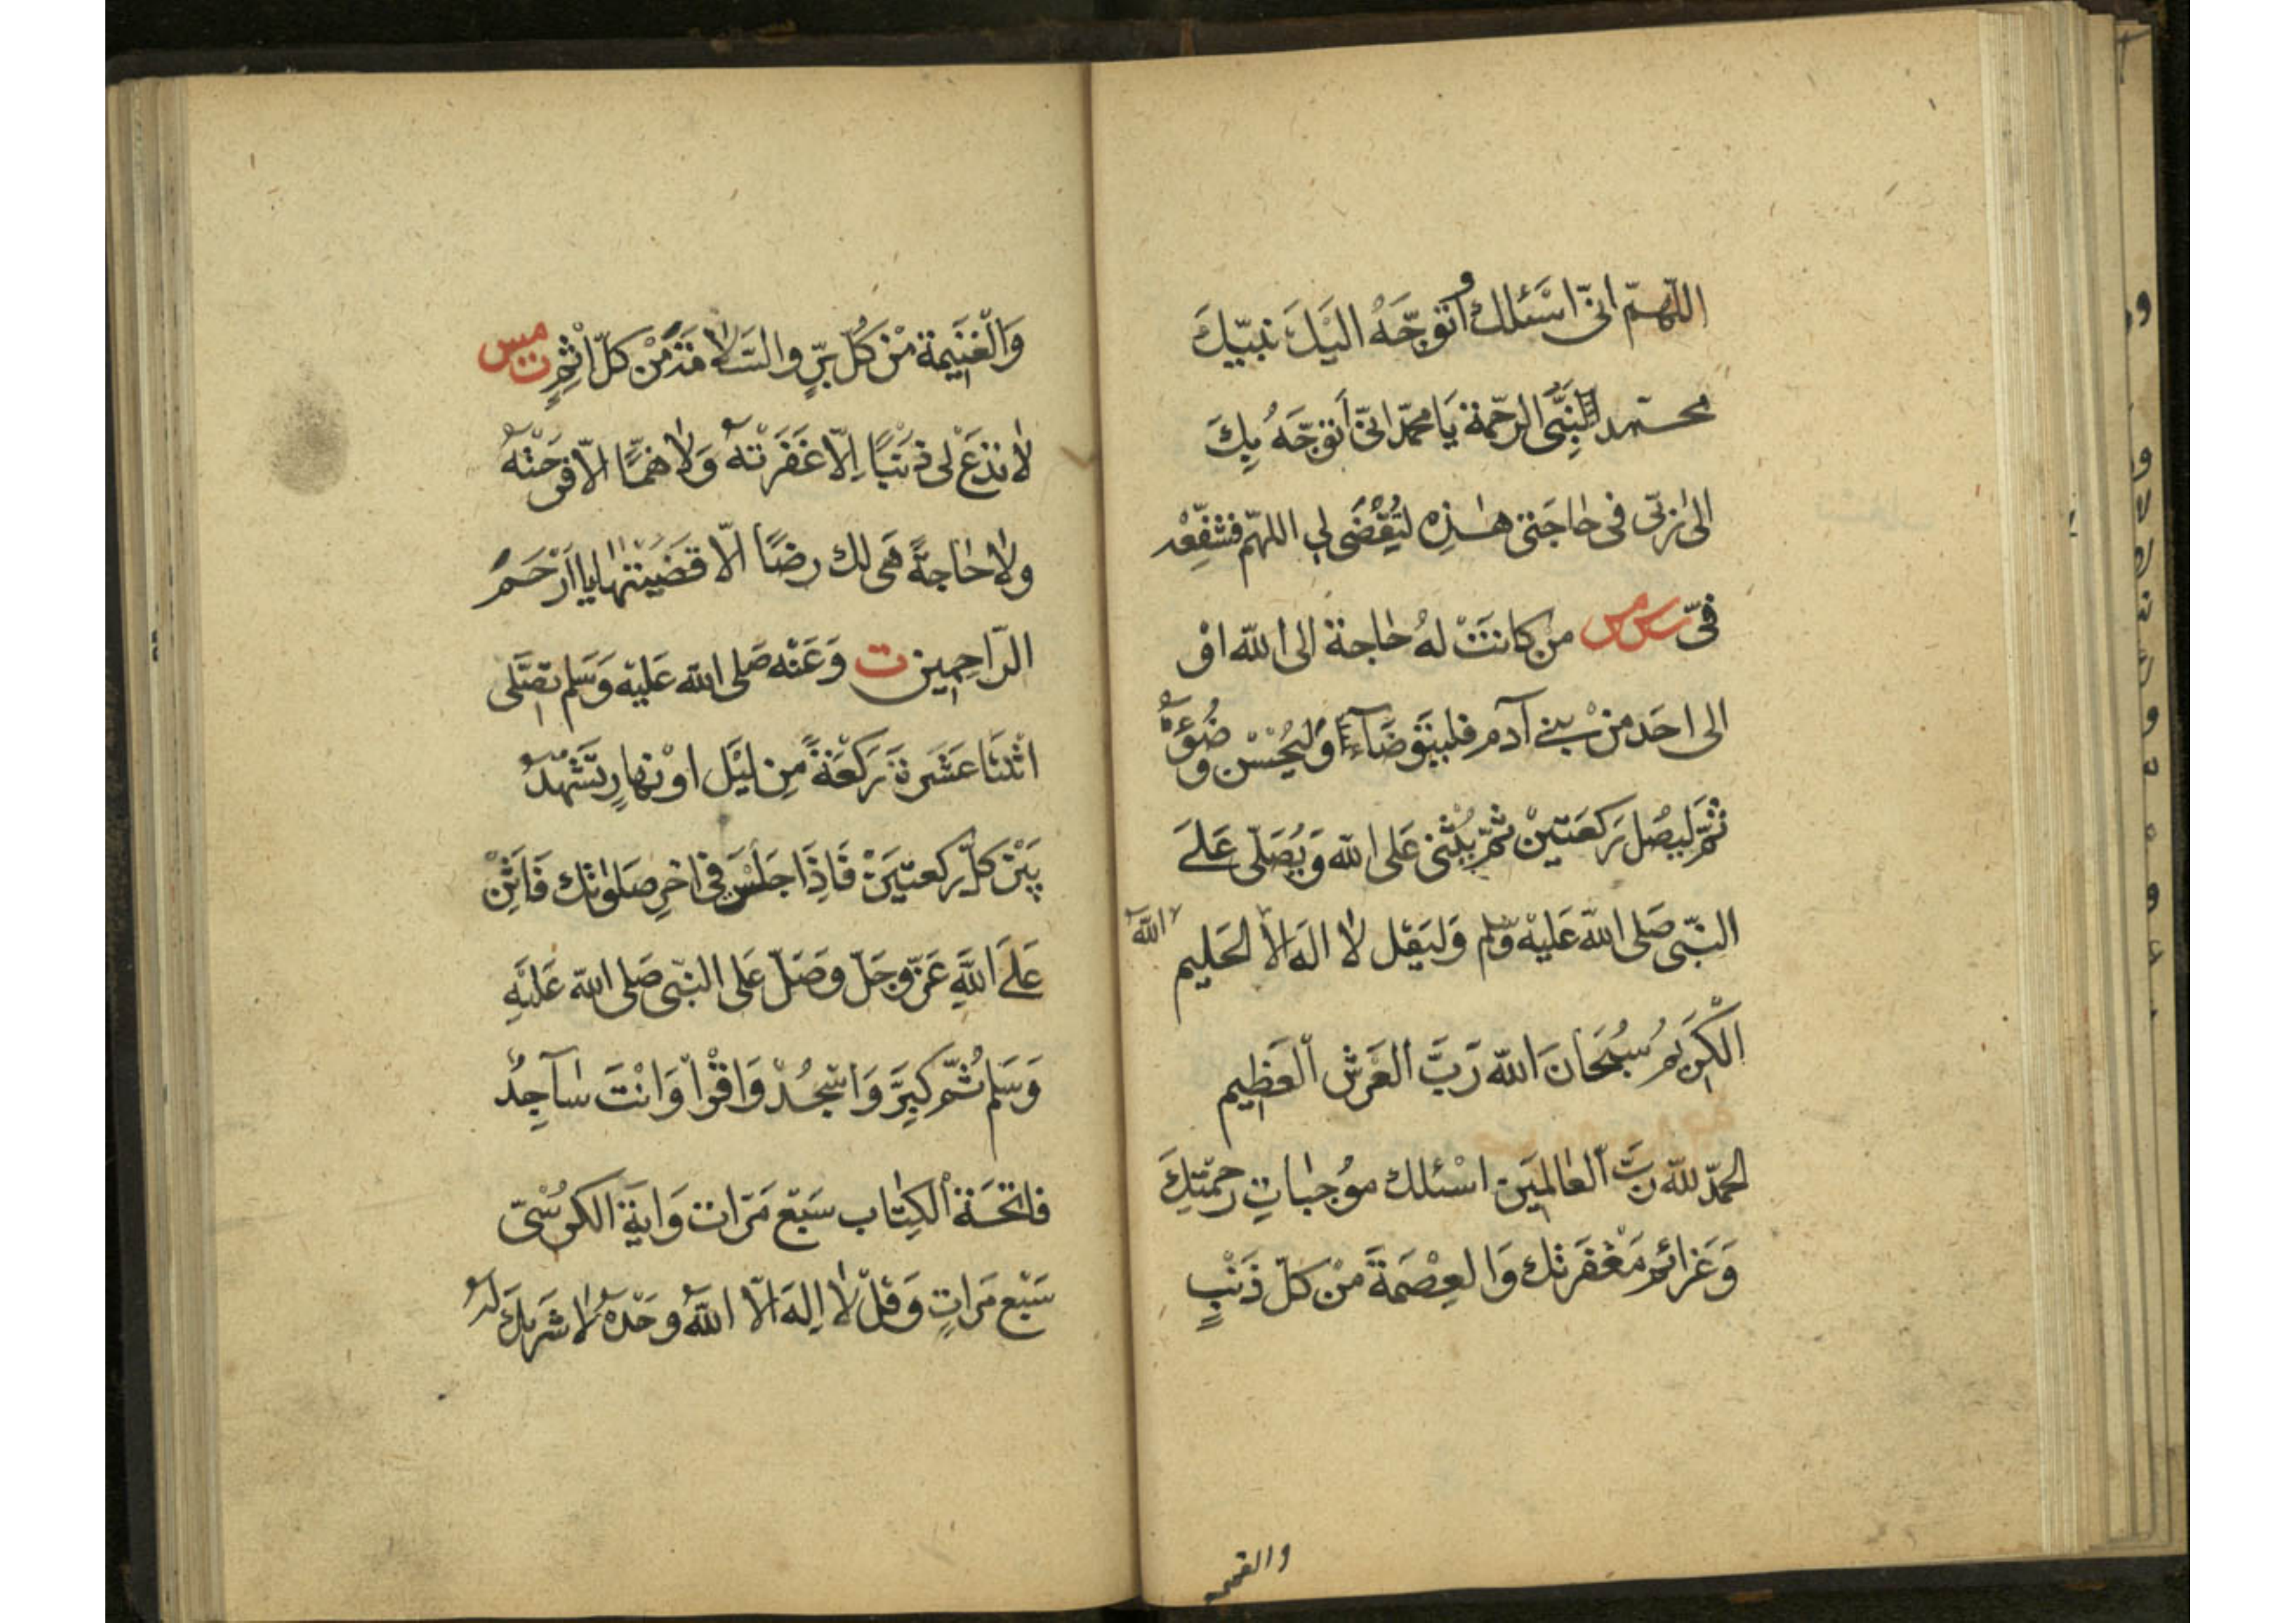 اللّهمّ انّى اسْئلك وأتوجّهُ اليْكَ نبيّكَ
محمّد النبىّ الرحمة يَا محمّد انّى أتوجّهُ بِكَ
الى ربّى فى حاجَتى هٰذِه لتُقْضَى لى اللهمّ فشفّعْه
فىّ س مس من كانَتْ لهُ حاجة الى الله اوْ
الى احَد منْ بنى آدم فليتوَضّاءْ وَليُحْسْن وضُوئَهُ
ثمّ ليصَل ركعَتينْ ثمّ يُثْنى عَلى الله وَيُصَلّى عَلىَ
النبّى صَلى الله عَليْه وسّلم وَليَقل لا الهَ الاّ الله الحَليم
الْكَريم سُبْحَانَ الله رَبَّ العَرْش العَظِيم
الحمدّ للّه ربّ العالمَين اسْئلك موُجبَاتِ رحمَتِكَ
وَعَزائم مَغْفَرتك وَالعِصْمَةَ منْ كلّ ذَنْبٍ
والغنيمه
وَالْغنَيِمة منْ كلُ برٍّ والسَّلامَة منْ كلّ اثْمٍ ت مس
لا تدَعْ لى ذنْبًا اِلاّ غَفَرْتهُ وَلا همًّا الاّ فرّجْتهُ
ولا حاجةً هَى لك رضًا الاّ قضَيْتَها يا اَرْحَمَ
الرّاحِمِين ت وَعَنْه صَلى الله عَليْه وَسَلم تصَلّى
اثْنتَا عَشَرة ركْعَةً مِن ليْل اوْ نهارٍ تتَشَهّدُ
بَيْن كلّ ركعتيَنْ فَاِذَا جَلسْتَ فى اخرِ صَلوتك فَاَثْنِ
عَلىَ اللَّهِ عَزّ وجَلّ وصَلّ عَلى النبّى صَلى الله عَليْهِ
وَسَلم ثُمّ كبِرَّ وَاسْجُدْ وَاقْرأ وَانْتَ سَاجِدٌ
فاتحَة الكِتاب سَبْع مَرّات وَاية الكرْسُىّ
سَبْع مَرّاتٍ وَقلْ لا اِلهَ الاّ اللهُ وحَدْهُ لا شَريكَ لهُ